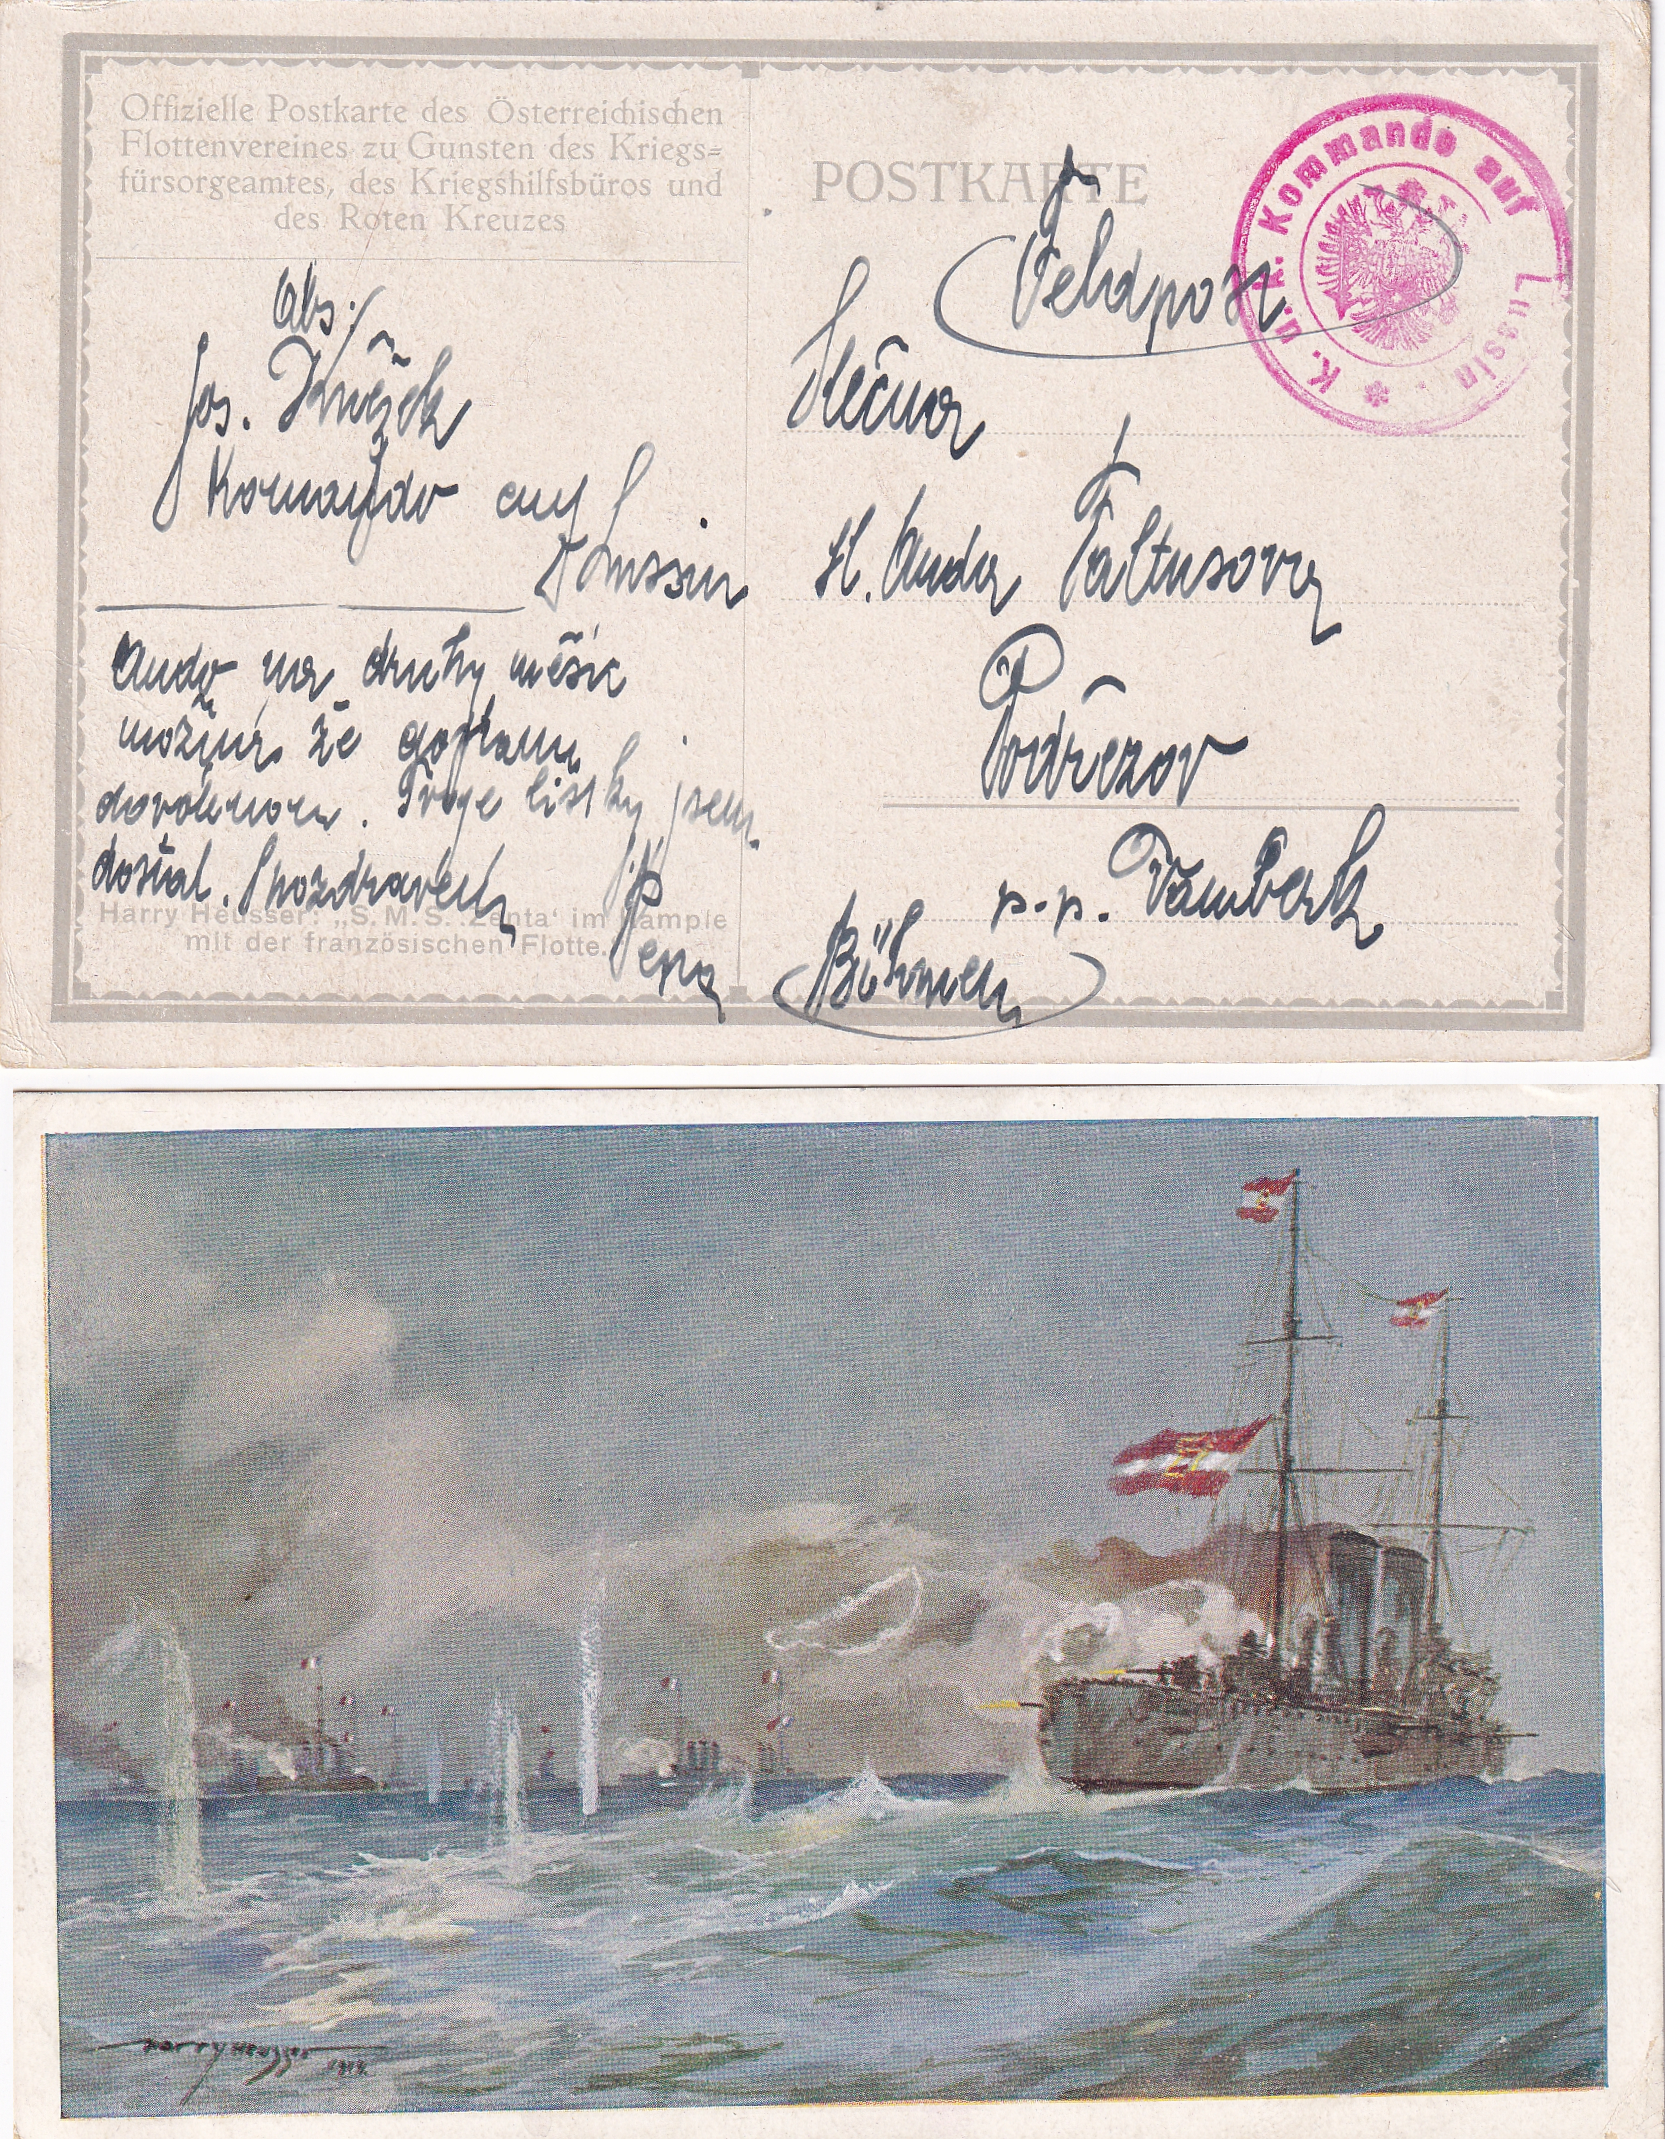 Offizielle Postkarte des Österreichischen
Flottenvereines zu Gunsten des Kriegs=
fürsorgeamtes, des Kriegshilfsbüros und
des Roten Kreuzes
POSTKARTE
K. u. k. Kommando auf Lussin.
Feldpost
Abs:
Jos.
Komando auf
Lussin
Ando na druhy měsíc
možná že
dovolenou. Tvoje lístky jsem
dostal. S pozdravem
Pepa
Harry Heusser: „S. M. S. ‚Zenta‘ im Kampfe
mit der französischen Flotte.
Slečna
sl. Anda Faltusova
Podřezov
p. p. Vamberk
Böhmen
Harry Heusser